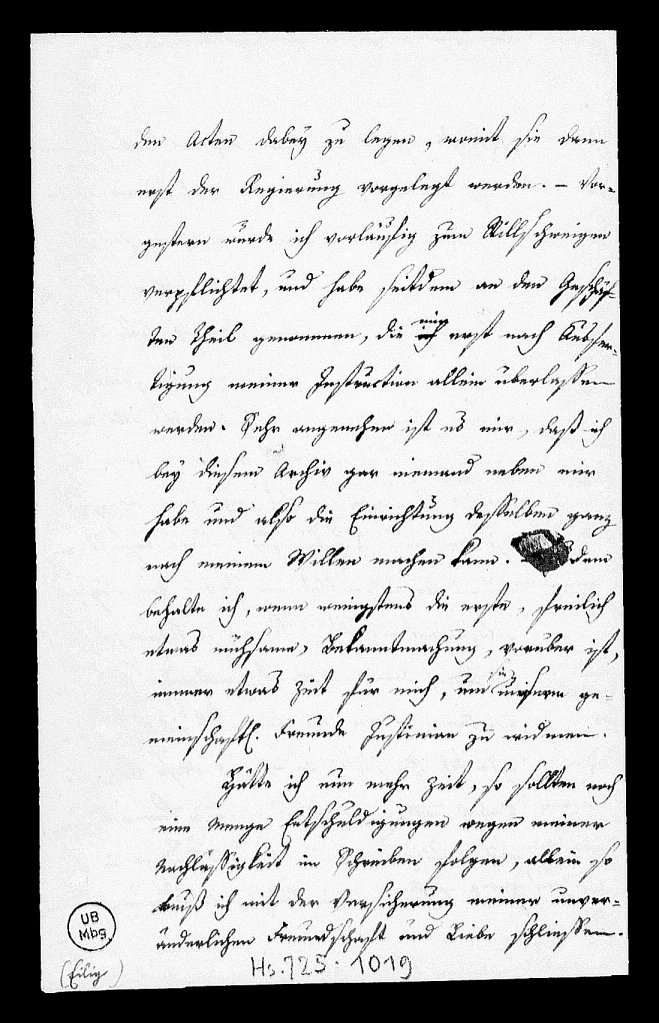 den Acten dabey zu legen, womit sie dann
erst der Regierung vorgelegt werden. – Vor-
gestern wurde ich vorläufig zum Stillschweigen
verpflichtet, und habe seitdem an den Geschäf-
ten Theil genommen, die mir erst nach Ausfer-
tigung meiner Instruction allein überlassen
werden. Sehr angenehm ist es mir, daß ich
bey diesem Archiv gar niemand neben mir
habe und also die Einrichtung desselben ganz
nach meinem Willen machen kann. dann
behalte ich, wenn wenigstens die erste, freilich
etwas mühsame, Bekanntmachung, vorüber ist,
immer etwas Zeit für mich, um sie unserm ge-
meinschaftl. Freunde Justinian zu widmen.
Hätte ich nun mehr Zeit, so sollten noch
eine Menge Entschuldigungen wegen meiner
Nachlässigkeit im Schreiben folgen, allein so
muß ich mit der Versicherung meiner unver-
änderlichen Freundschaft und Liebe schliessen.
UB
Mbg
(Eilig)
Hs. 725 · 1019